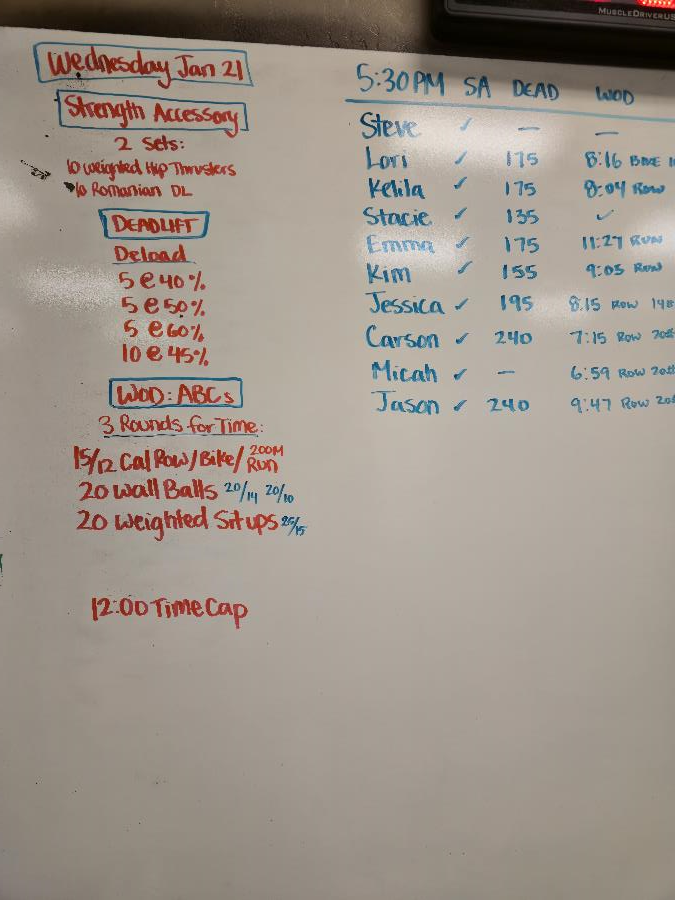 MUSCLEDRIVERUS
Wednesday Jan 21
Strength Accessory
2 Sets:
10 Weighted Hip Thrusters
10 Romanian DL
DEADLIFT
Deload
5 @ 40%
5 @ 50%
5 @ 60%
10 @ 45%
WOD: ABCs
3 Rounds for Time:
15/12 Cal Row/Bike/ 200M Run
20 Wall Balls 20/14 20/10
20 Weighted Situps 25/15
12:00 Time Cap
5:30PM SA DEAD WOD
Steve ✓ — —
Lori ✓ 175 8:16 BIKE
Kelila ✓ 175 8:04 Row
Stacie ✓ 135 ✓
Emma ✓ 175 11:27 RUN
Kim ✓ 155 9:05 RUN
Jessica ✓ 195 8:15 ROW 14#
Carson ✓ 240 7:15 Row 20#
Micah ✓ — 6:59 Row 20#
Jason ✓ 240 9:47 Row 20#